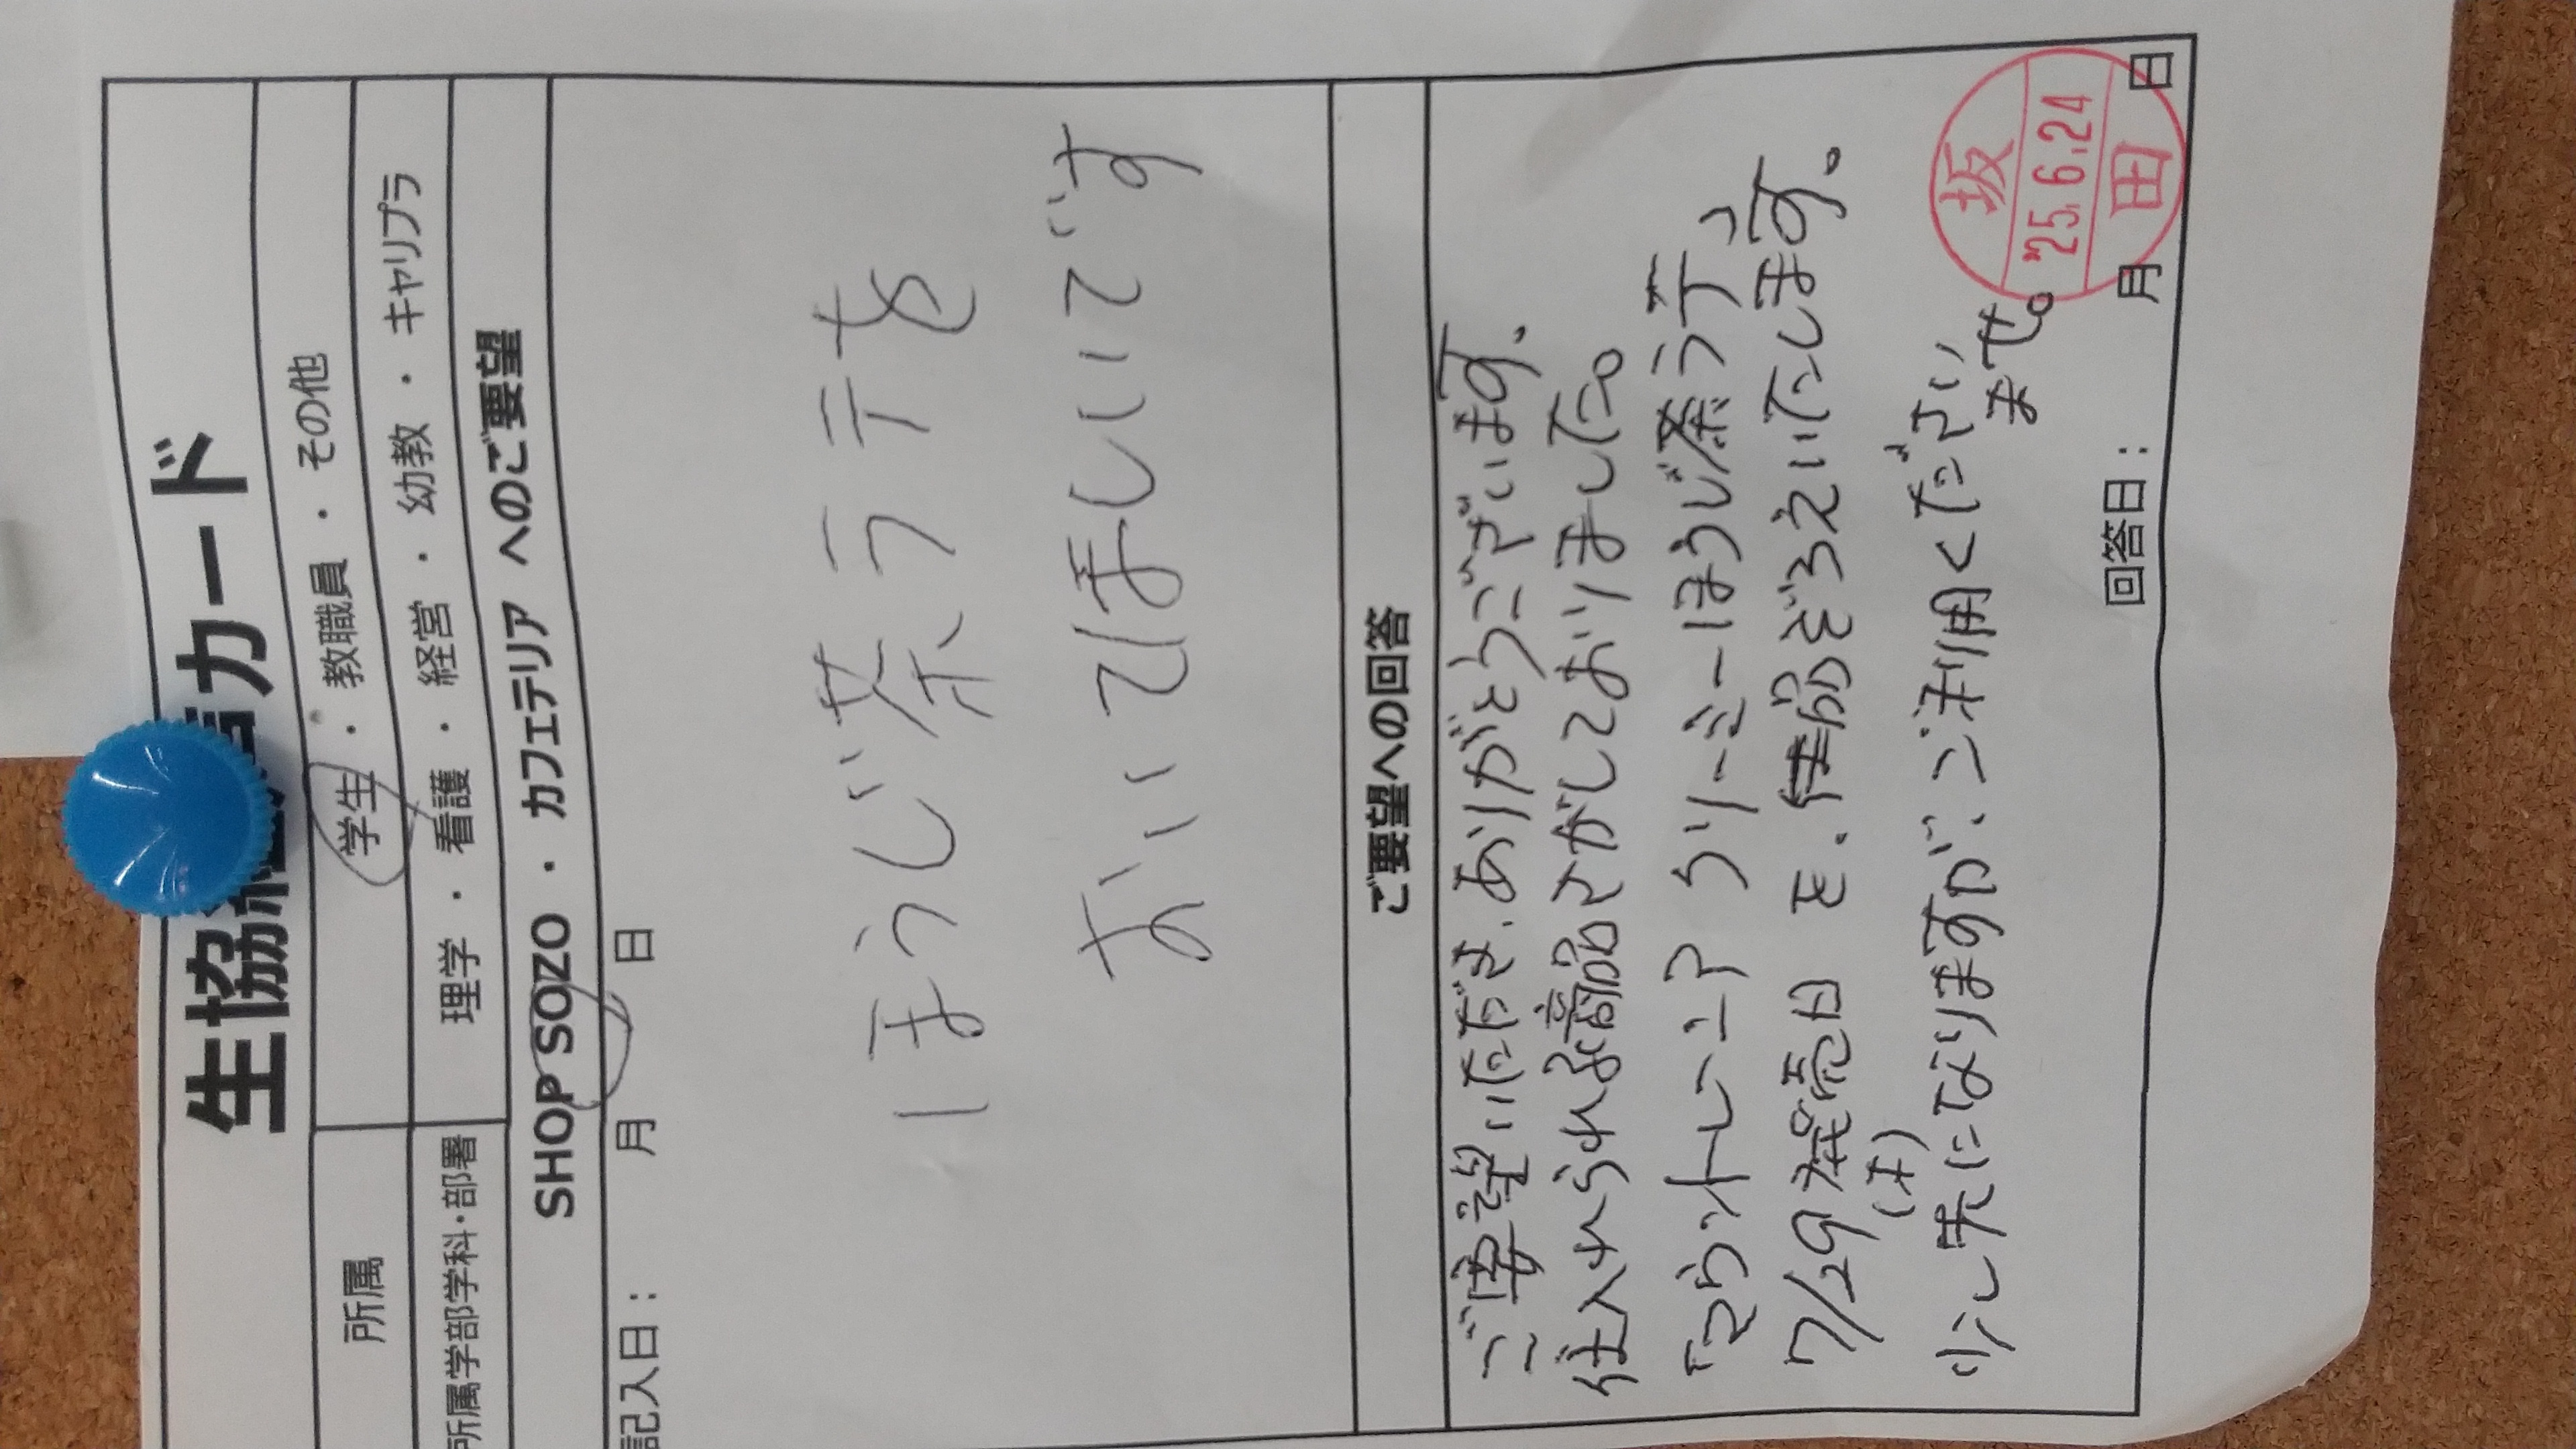 生協 カード
所属 学生 ・ 教職員 ・ その他
所属学部学科・部署 理学 ・ 看護 ・ 経営 ・ 幼教 ・ キャリプラ
SHOP SOZO ・ カフェテリア へのご要望
記入日： 月 日
ほうじ茶ラテを
おいてほしいです
ご要望への回答
ご要望いただき、ありがとうございます。
仕入れられる商品さがしておりました。
「マウントレーニア クリーミーほうじ茶ラテ」
7/29発売日 を、 ぞろえいたします。
(火)
少し先になりますが、ご利用ください
ませ。
回答日： 月 日
坂
'25.6.24
田